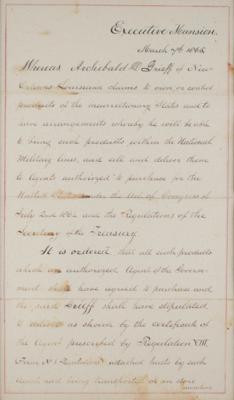 Executive Mansion,
March 7th 1865
Whereas Archibald D. Grieff of New
Orleans Louisiana claims to own or control
products of the insurrectionary States and to
have arrangements whereby he will be able
to bring such products within the National
Military lines, and sell and deliver them
to Agents authorized to purchase for the
United States under the Act of Congress of
July 2nd 1864 and the Regulations of the
Secretary of the Treasury.
It is ordered that all such products
which an authorized Agent of the Govern-
ment shall have agreed to purchase and
the said Grieff shall have stipulated
to deliver as shown by the certificate of
the Agent prescribed by Regulation VIII
Form No 1 attached hereto by such
Agent and being transported or in store